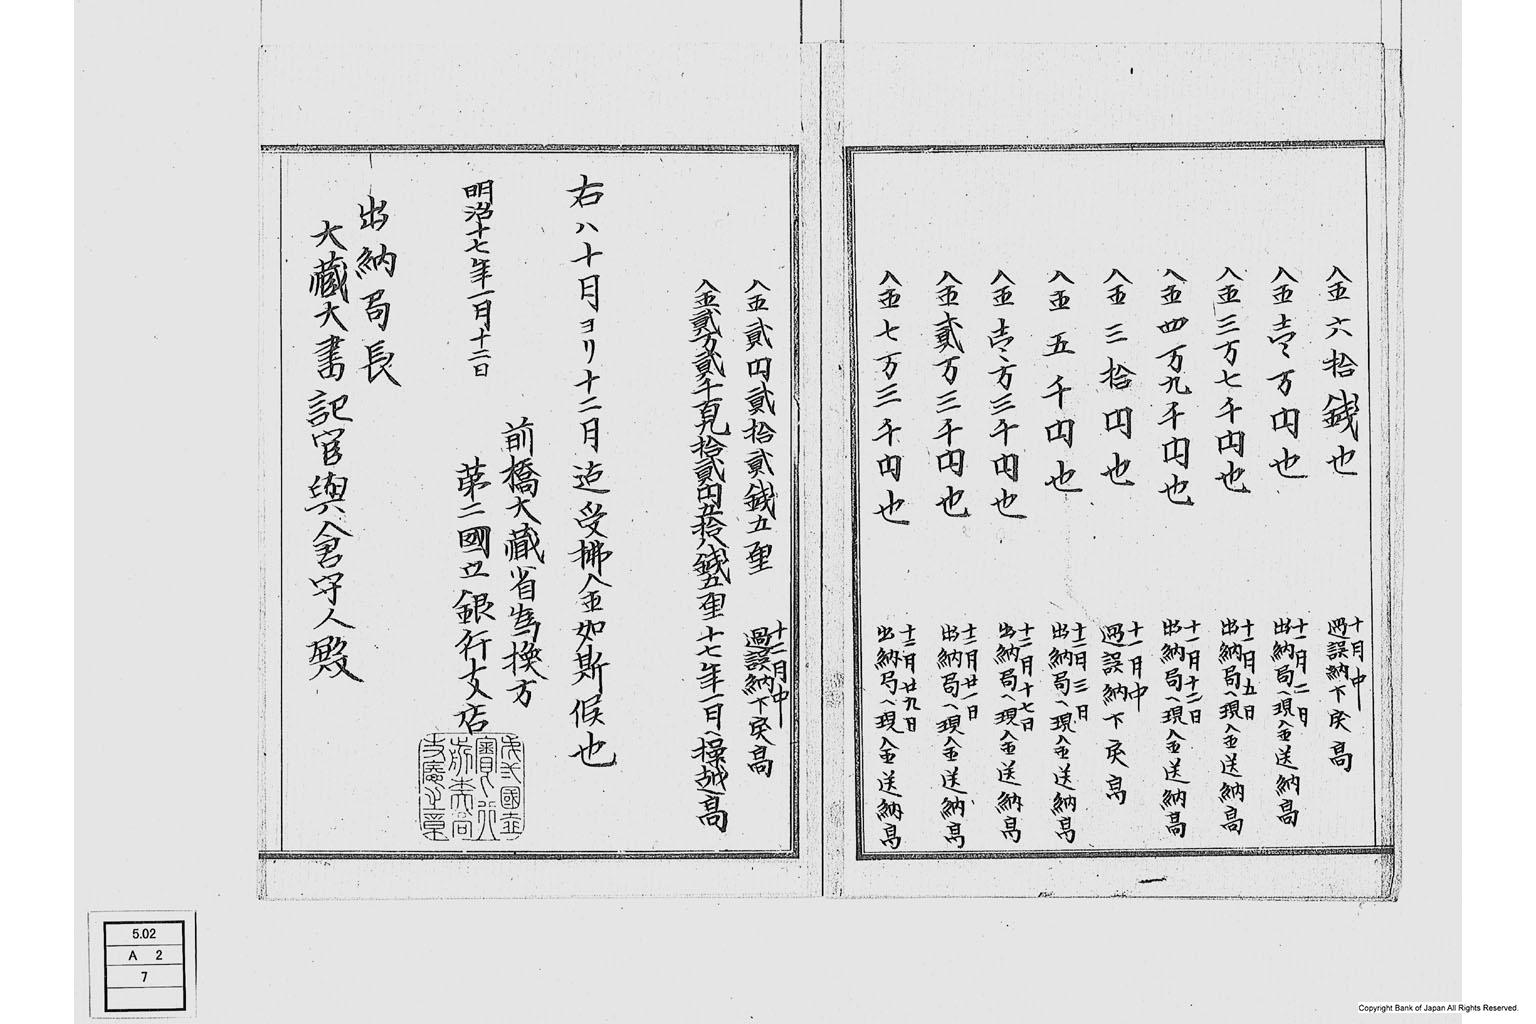 入金六拾銭也 十月中過誤納下戻高
入金壱万円也 十一月二日出納局ヘ現金送納高
入金三万七千円也 十一月五日出納局ヘ現金送納高
入金四万九千円也 十一月十二日出納局ヘ現金送納高
入金三拾円也 十一月中過誤納下戻高
入金五千円也 十二月三日出納局ヘ現金送納高
入金壱万三千円也 十二月十七日出納局ヘ現金送納高
入金貳万三千円也 十二月廿一日出納局ヘ現金送納高
入金七万三千円也 十二月廿九日出納局ヘ現金送納高
入金貳円貳拾貳銭五厘 十二月中過誤納下戻高
入金貳万貳千百九拾貳円五拾八銭五厘 十七年一月ヘ操越高
右ハ十月ヨリ十二月迄受拂金如斯候也
前橋大蔵省為換方
明治十七年一月十二日
第二國立銀行支店
出納局長
大蔵大書記官與倉守人殿
5.02
A 2
7
Copyright Bank of Japan All Rights Reserved.